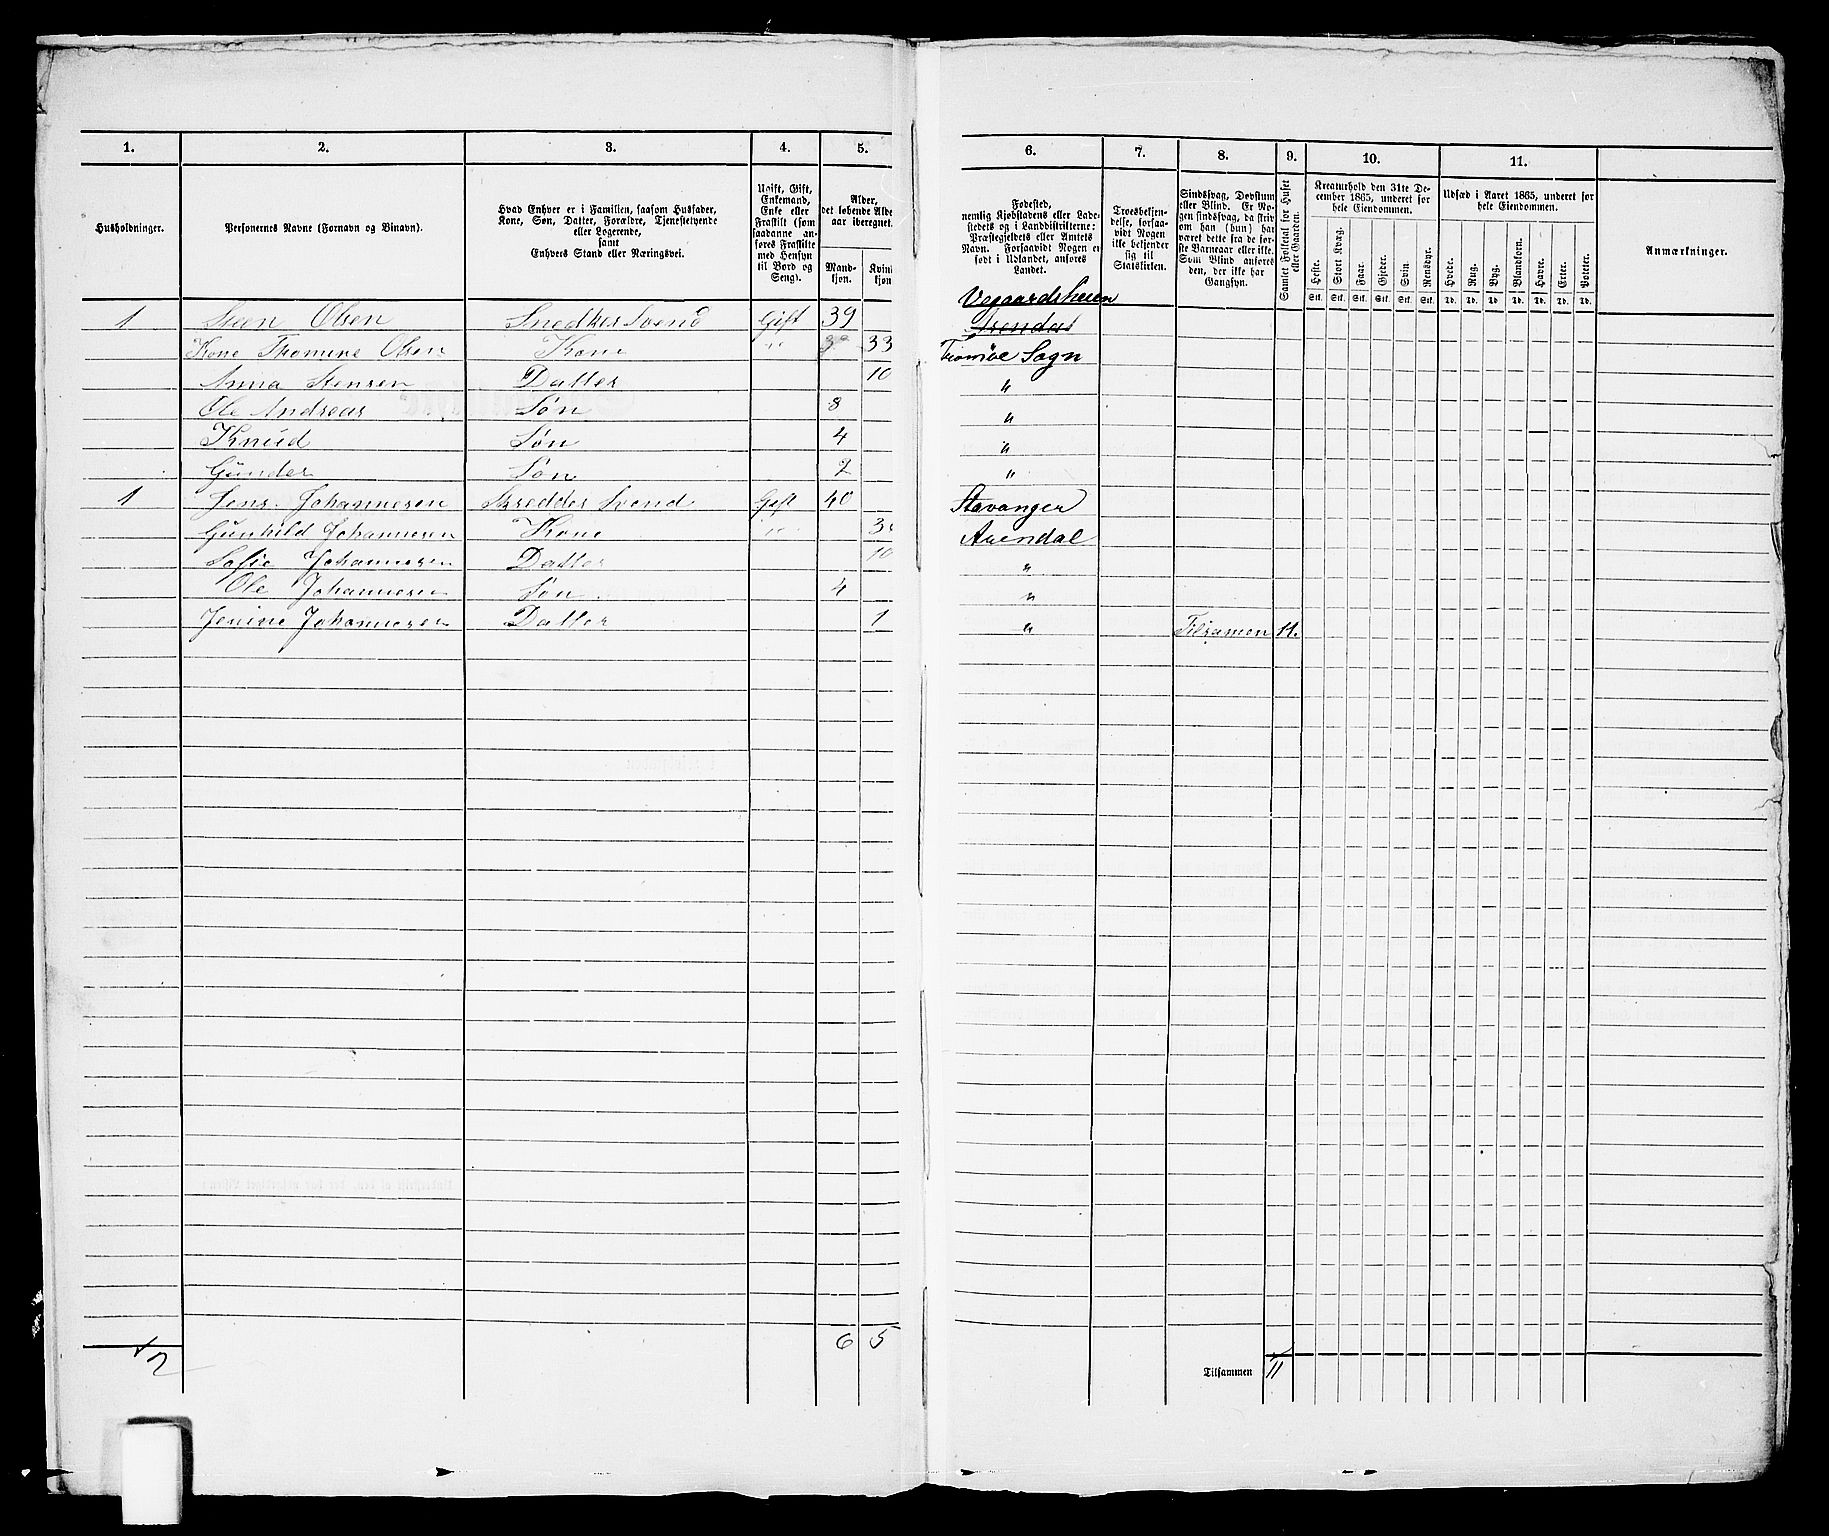 1. 2. 3. 4. 5. 6. 7. 8. 9. 10. 11.
Husholdninger.
Personernes Navne (Fornavn og Binavn).
Hvad Enhver er i Familien, saasom Husfader,
Kone, Søn, Datter, Forældre, Tjenestetyende
eller Logerende,
samt
Enhvers Stand eller Næringsvei.
Ugift, Gift,
Enkemand,
Enke eller
Fraskilt (som
saadanne an-
føres Fraskilte
med Hensyn
til Bord og
Seng).
Alder,
det løbende Alders-
aar iberegnet.
Mand-
kjøn.
Kvind
kjøn
Fødested,
nemlig Kjøbstadens eller Lade-
stedets og i Landdistrikterne:
Præstegjeldets eller Amtets
Navn. Forsaavidt Nogen er
født i Udlandet, anføres
Landet.
Troesbekjen-
delse, forsaa-
vidt Nogen
ikke bekjender
sig til
Statskirken.
Sindssvag, Døvstum
eller Blind. Er No-
gen sindssvag, da skriv
om han (hun) har
været dette fra de før-
ste Barneaar eller ikke.
Som Blind anføres
den, der ikke har
Gangsyn.
Samlet Folketal for Huset
eller Gaarden.
Kreaturhold den 31te De-
cember 1865, underet for
hele Eiendommen.
Heste. Stort Kvæg. Faar. Gjeder. Svin. Rensdyr.
Stk. Stk. Stk. Stk. Stk. Stk.
Udsæd i Aaret 1865, underet for
hele Eiendommen.
Hvede. Rug. Byg. Blandkorn. Havre. Erter. Poteter.
Td. Td. Td. Td. Td. Td. Td.
Anmærkninger.
Vegaardsheien
1 Steen Olsen Snedker Svend Gift 39 Arendal
Kone Thomine Olsen Kone " 33 Tromøe Sogn
Anna Stensen Datter 10 "
Ole Andreas Søn 8 "
Knud Søn 4 "
Gunder Søn 2 "
1 Jens Johannesen Skredder Svend Gift 40 Stavanger
Gunhild Johannesen Kone " Arendal
Sofie Johannesen Datter 10 "
Ole Johannesen Søn 4 "
Jenine Johannesen Datter 1 " Tilsamen 11.
2 6 5
Tilsammen 11